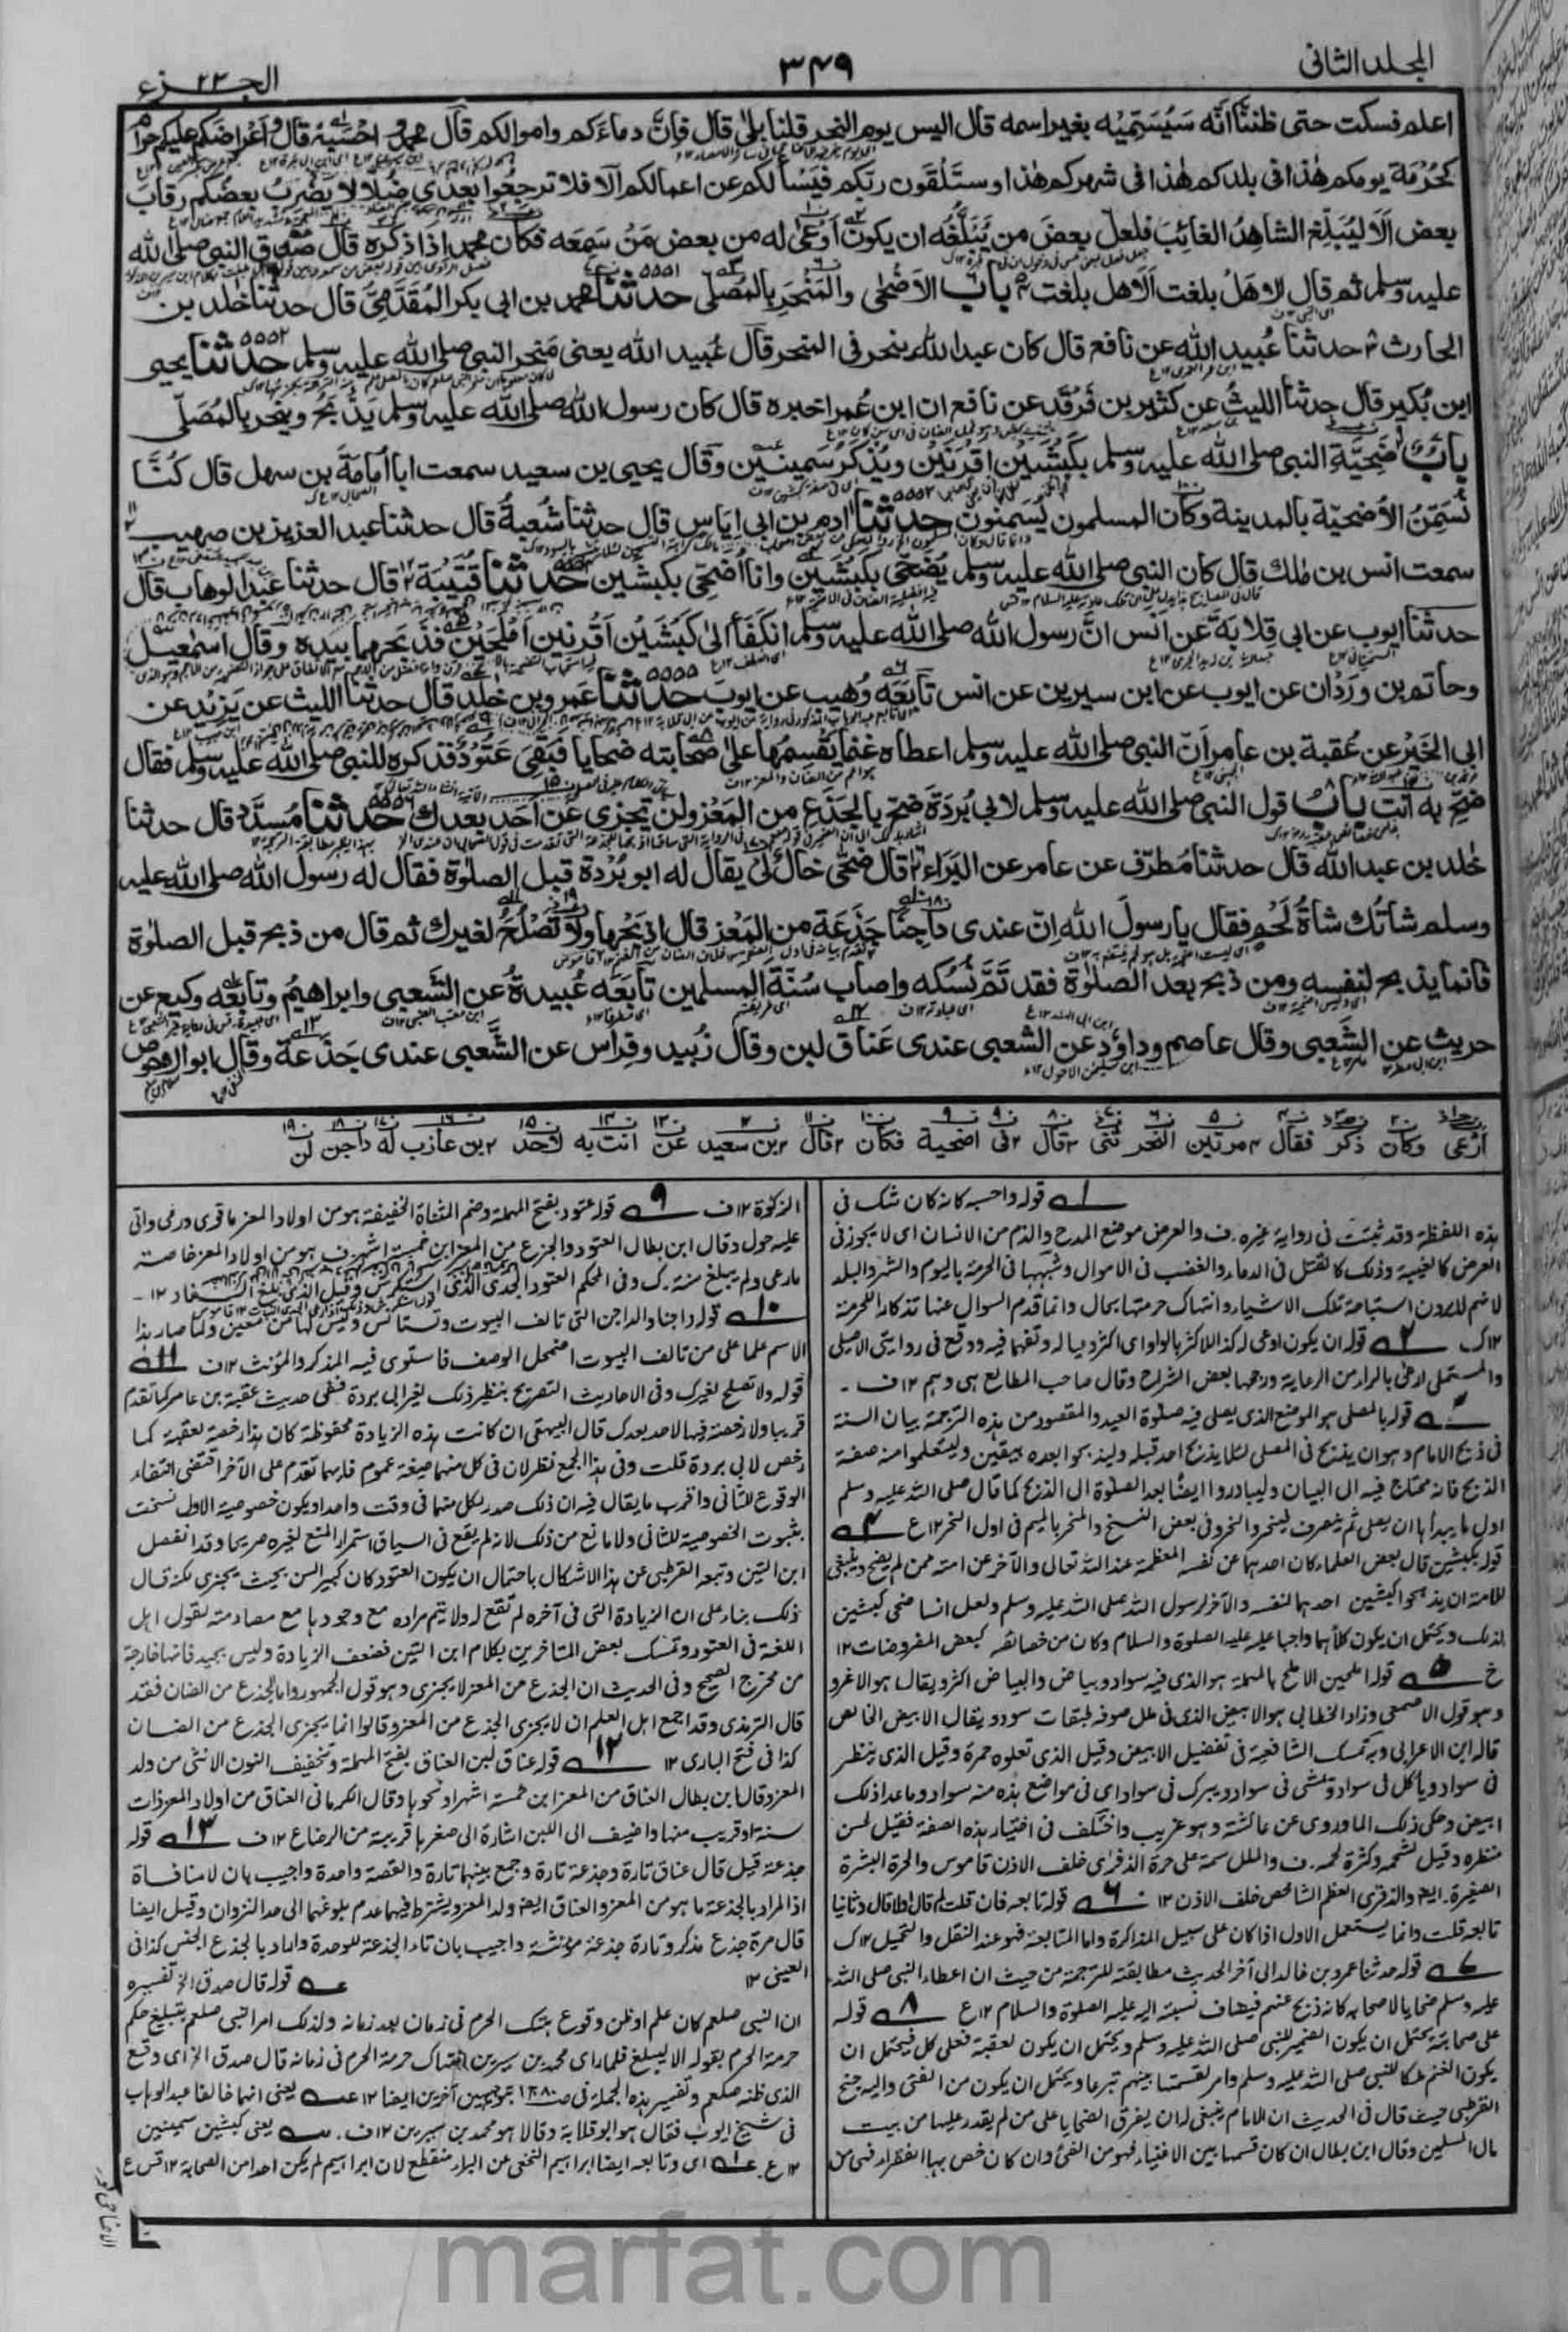 المجلد الثانى
٣٤٩
الجزء ٢٣
اعلم فسكت حتى ظننا انه سيسميه بغير اسمه قال اليس يوم النحر قلنا بلى قال فان دماءكم واموالكم قال محمد واحسبه قال واعراضكم عليكم حرام
كحرمة يومكم هذا فى بلدكم هذا فى شهركم هذا وستلقون ربكم فيسألكم عن اعمالكم الا فلا ترجعوا بعدى ضلالا يضرب بعضكم رقاب
بعض الا ليبلغ الشاهد الغائب فلعل بعض من يبلغه ان يكون اوعى له من بعض من سمعه فكان محمد اذا ذكره قال صدق النبى صلى الله
عليه وسلم ثم قال الا هل بلغت الا هل بلغت باب الاضحى والمنحر بالمصلى ٥٥٥١ حدثنا محمد بن ابى بكر المقدمى قال حدثنا خلد بن
الحارث حدثنا عبيد الله عن نافع قال كان عبد الله ينحر فى المنحر قال عبيد الله يعنى منحر النبى صلى الله عليه وسلم ٥٥٥٢ حدثنا يحيى
ابن بكير قال حدثنا الليث عن كثير بن فرقد عن نافع ان ابن عمر اخبره قال كان رسول الله صلى الله عليه وسلم يذبح وينحر بالمصلى
باب اضحية النبى صلى الله عليه وسلم بكبشين اقرنين ويذكر سمينين وقال يحيى بن سعيد سمعت ابا امامة بن سهل قال كنا
نسمن الاضحية بالمدينة وكان المسلمون يسمنون ٥٥٥٣ حدثنا ادم بن ابى اياس قال حدثنا شعبة قال حدثنا عبد العزيز بن صهيب
سمعت انس بن ملك قال كان النبى صلى الله عليه وسلم يضحى بكبشين وانا اضحى بكبشين ٥٥٥٤ حدثنا قتيبة قال حدثنا عبد الوهاب قال
حدثنا ايوب عن ابى قلابة عن انس ان رسول الله صلى الله عليه وسلم انكفأ الى كبشين اقرنين املحين فذبحهما بيده وقال اسمعيل
وحاتم بن وردان عن ايوب عن ابن سيرين عن انس تابعه وهيب عن ايوب ٥٥٥٥ حدثنا عمرو بن خلد قال حدثنا الليث عن يزيد عن
ابى الخير عن عقبة بن عامر ان النبى صلى الله عليه وسلم اعطاه غنما يقسمها على صحابته ضحايا فبقى عتود فذكره للنبى صلى الله عليه وسلم فقال
ضح به انت باب قول النبى صلى الله عليه وسلم لابى بردة ضح بالجذع من المعز ولن تجزى عن احد بعدك ٥٥٥٦ حدثنا مسدد قال حدثنا
خلد بن عبد الله قال حدثنا مطرف عن عامر عن البراء قال ضحى خال لى يقال له ابو بردة قبل الصلوة فقال له رسول الله صلى الله عليه
وسلم شاتك شاة لحم فقال يا رسول الله ان عندى داجنا جذعة من المعز قال اذبحها ولا تصلح لغيرك ثم قال من ذبح قبل الصلوة
فانما يذبح لنفسه ومن ذبح بعد الصلوة فقد تم نسكه واصاب سنة المسلمين تابعه عبيدة عن الشعبى وابراهيم وتابعه وكيع عن
حريث عن الشعبى وقال عاصم وداود عن الشعبى عندى عناق لبن وقال زبيد وفراس عن الشعبى عندى جذعة وقال ابو الاحوص
ارعى وكان ذكر فقال مرتين النحر ثنى قال فى اضحية فكان قال بن سعيد عن انت به لاحد بن عازب له داجن لن
١ قوله واحسبه كانه كان شك فى
هذه اللفظة وقد ثبتت فى رواية غيره ف والعرض موضع المدح والذم من الانسان اى لا يجوز فى
العرض كالغيبة وذلك كالقتل فى الدماء والغصب فى الاموال وشبهها فى الحرمة باليوم والشهر والبلد
لانهم لا يرون استباحة تلك الاشياء وانتهاك حرمتها بحال وانما قدم السوال عنها تذكارا للحرمة
١٢ك ٢ قوله ان يكون اوعى له كذا للاكثر بالواو اى اكثر وعيا له وتفهما فيه ووقع فى روايتى الاصيلى
والمستملى ارعى بالراء من الرعاية ورجحها بعض الشراح وقال صاحب المطالع هى وهم ١٢ف -
٣ قوله بالمصلى هو الموضع الذى يصلى فيه صلوة العيد والمقصود من هذه الترجمة بيان السنة
فى ذبح الامام وهو ان يذبح فى المصلى لئلا يذبح احد قبله وليذبحوا بعده بيقين وليتعلموا منه صفة
الذبح فانه مما يحتاج فيه الى البيان وليبادروا ايضا بعد الصلوة الى الذبح كما قال صلى الله عليه وسلم
اول ما يبدأ به ان يصلى ثم ينصرف فينحر والنحر وفى بعض النسخ والمنحر بالميم فى اول النحر ١٢ع ٤
قوله بكبشين قال بعض العلماء كان احدهما عن نفسه المعظمة عند الله تعالى والآخر عن امته ممن لم يضح وينبغى
للامة ان يذبحوا كبشين احدهما لنفسه والآخر لرسول الله صلى الله عليه وسلم ولعل انسا ضحى كبشين
لذلك ويحتمل ان يكون كلاهما واجبا عليه عليه الصلوة والسلام وكان من خصائصه كبعض المفروضات ١٢
خ ٥ قوله املحين الاملح بالمهملة هو الذى فيه سواد وبياض والبياض اكثر ويقال هو الاغبر
وهو قول الاصمعى وزاد الخطابى هو الابيض الذى فى خلل صوفه طبقات سود ويقال الابيض الخالص
قاله ابن الاعرابى وبه تمسك الشافعية فى تفضيل الابيض وقيل الذى تعلوه حمرة وقيل الذى ينظر
فى سواد ويأكل فى سواد ويمشى فى سواد ويبرك فى سواد اى فى مواضع هذه منه سواد وما عدا ذلك
ابيض وحكى ذلك الماوردى عن عائشة وهو غريب واختلف فى اختيار هذه الصفة فقيل لحسن
منظره وقيل لشحمه وكثرة لحمه ف والملل سمة على حرة الذفرى خلف الاذن قاموس والحرة البشرة
الصغيرة. ايضا والذفرى العظم الشاخص خلف الاذن ١٢ ٦ قوله تابعه فان قلت لم قال اولا قال وثانيا
تابعه قلت وانما يستعمل الاول اذا كان على سبيل المذاكرة واما المتابعة فهو عند النقل والتحميل ١٢ك
٧ قوله حدثنا عمرو بن خالد الى آخر الحديث مطابقته للترجمة من حيث ان اعطاء النبى صلى الله
عليه وسلم ضحايا لاصحابه كانه ذبح عنهم فيضاف نسبته اليه عليه الصلوة والسلام ١٢ع ٨ قوله
على صحابته يحتمل ان يكون الضمير للنبى صلى الله عليه وسلم ويحتمل ان يكون لعقبة فعلى كل فيحتمل ان
يكون الغنم ملكا للنبى صلى الله عليه وسلم وامر بقسمتها بينهم تبرعا ويحتمل ان يكون من الفئ واليه جنح
القرطبى حيث قال فى الحديث ان الامام ينبغى له ان يفرق الضحايا على من لم يقدر عليها من بيت
مال المسلمين وقال ابن بطال ان كان قسمها بين الاغنياء فهو من الفئ وان كان خص بها الفقراء فهى من
الزكوة ١٢ف ٩ قوله عتود بفتح المهملة وضم المثناة الخفيفة هو من اولاد المعز ما قوى ورعى واتى
عليه حول وقال ابن بطال العتود والجذع من المعز ابن خمسة اشهر ف هو من اولاد المعز خاصة
ما رعى ولم يبلغ سنة. ك وفى المحكم العتود الجدى الذى استكرش وقيل الذى بلغ السفاد ١٢-
١٠ قوله داجنا والداجن التى تالف البيوت وتستانس وليس لها سن معين ولما صار هذا
الاسم علما على من تالف البيوت اضمحل الوصف فاستوى فيه المذكر والمؤنث ١٢ف ١١
قوله ولا تصلح لغيرك وفى الاحاديث التصريح بنظير ذلك لغير ابى بردة ففى حديث عقبة بن عامر كما تقدم
قريبا ولا رخصة فيها لاحد بعدك قال البيهقى ان كانت هذه الزيادة محفوظة كان هذا رخصة لعقبة كما
رخص لابى بردة قلت وفى هذا الجمع نظر لان فى كل منهما صيغة عموم فايهما تقدم على الآخر اقتضى انتفاء
الوقوع للثانى واقرب ما يقال فيه ان ذلك صدر لكل منهما فى وقت واحد او يكون خصوصية الاول نسخت
بثبوت الخصوصية للثانى ولا مانع من ذلك لانه لم يقع فى السياق استمرار المنع لغيره صريحا وقد انفصل
ابن التين وتبعه القرطبى عن هذا الاشكال باحتمال ان يكون العتود كان كبير السن بحيث يجزى لكنه قال
ذلك بناء على ان الزيادة التى فى آخره لم تقع له ولا يتم مراده مع وجودها مع مصادمته لقول اهل
اللغة فى العتود وتمسك بعض المتاخرين بكلام ابن التين فضعف الزيادة وليس بجيد فانها خارجة
من مخرج الصحيح وفى الحديث ان الجذع من المعز لا يجزى وهو قول الجمهور واما الجذع من الضان فقد
قال الترمذى وقد اجمع اهل العلم ان لا يجزى الجذع من المعز وقالوا انما يجزى الجذع من الضان
كذا فى فتح البارى ١٢ ١٢ قوله عناق لبن العناق بفتح المهملة وتخفيف النون الانثى من ولد
المعز وقال ابن بطال العناق من المعز ابن خمسة اشهر او نحوها وقال الكرمانى العناق من اولاد المعز ذات
سنة او قريب منها واضيف الى اللبن اشارة الى صغرها قريبة من الرضاع ١٢ف ١٣ قوله
جذعة قيل قال عناق تارة وجذعة تارة وجمع بينهما تارة والقصة واحدة واجيب بان لا منافاة
اذ المراد بالجذعة ما هو من المعز والعناق ايضا ولد المعز ويشترط فيهما عدم بلوغهما الى حد النزوان وقيل ايضا
قال مرة جذع مذكر وتارة جذعة مؤنثة واجيب بان تاء الجذعة للوحدة واراد بالجذع الجنس كذا فى
العينى ١٢ قوله قال صدق الخ تفسيره
ان النبى صلعم كان علم او ظن وقوع هتك الحرم فى زمان بعد زمانه ولذلك امر النبى صلعم بتبليغ حكم
حرمة الحرم بقوله الا ليبلغ فلما راى محمد بن سيرين انتهاك حرمة الحرم فى زمانه قال صدق الخ اى وقع
الذى ظنه صلعم وتفسير هذه الجملة فى بتوجيهين آخرين ايضا ١٢ يعنى انهما خالفا عبد الوهاب
فى شيخ ايوب فقال هو ابو قلابة وقالا هو محمد بن سيرين ١٢ف. يعنى كبشين سمينين
١٢ع. اى وتابعه ايضا ابراهيم النخعى عن البراء منقطع لان ابراهيم لم يلق احدا من الصحابة ١٢قس ع
marfat.com